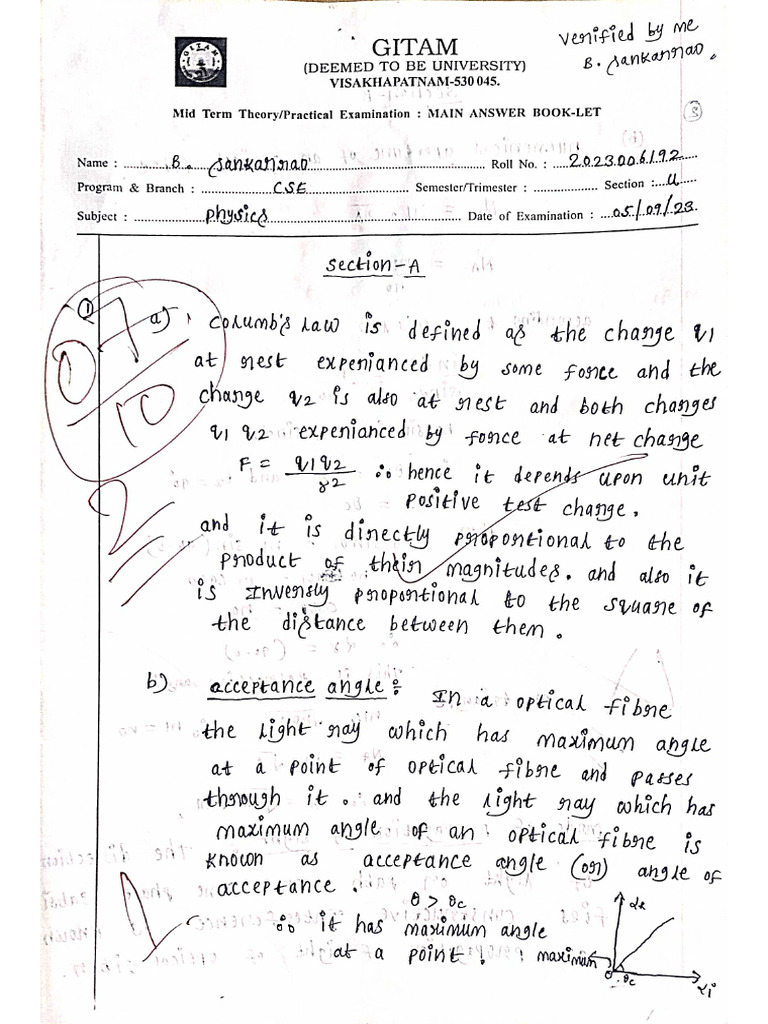 GITAM
(DEEMED TO BE UNIVERSITY)
VISAKHAPATNAM-530 045.
Verified by me
B. Sankarrao.
Mid Term Theory/Practical Examination : MAIN ANSWER BOOK-LET
3
Name : B. Sankarrao Roll No. : 2023006192
Program & Branch : CSE Semester/Trimester : Section : U
Subject : Physics Date of Examination : 05/09/23
Section-A
07/10
1) a) Columb's Law is defined as the charge q1
at rest experianced by some force and the
charge q2 is also at rest and both charges
q1 q2 experianced by force at net charge
F = q1q2/r2 ∴ hence it depends upon unit
positive test charge.
2
and it is directly propotional to the
product of their magnitudes. and also it
is Inversly proportional to the square of
the distance between them.
b) acceptance angle: In a optical fibre
the light ray which has maximum angle
at a point of optical fibre and passes
through it. and the light ray which has
maximum angle of an optical fibre is
known as acceptance angle (or) angle of
acceptance.
θ > θc
1
∴ it has maximum angle
at a point.
maximum
θc